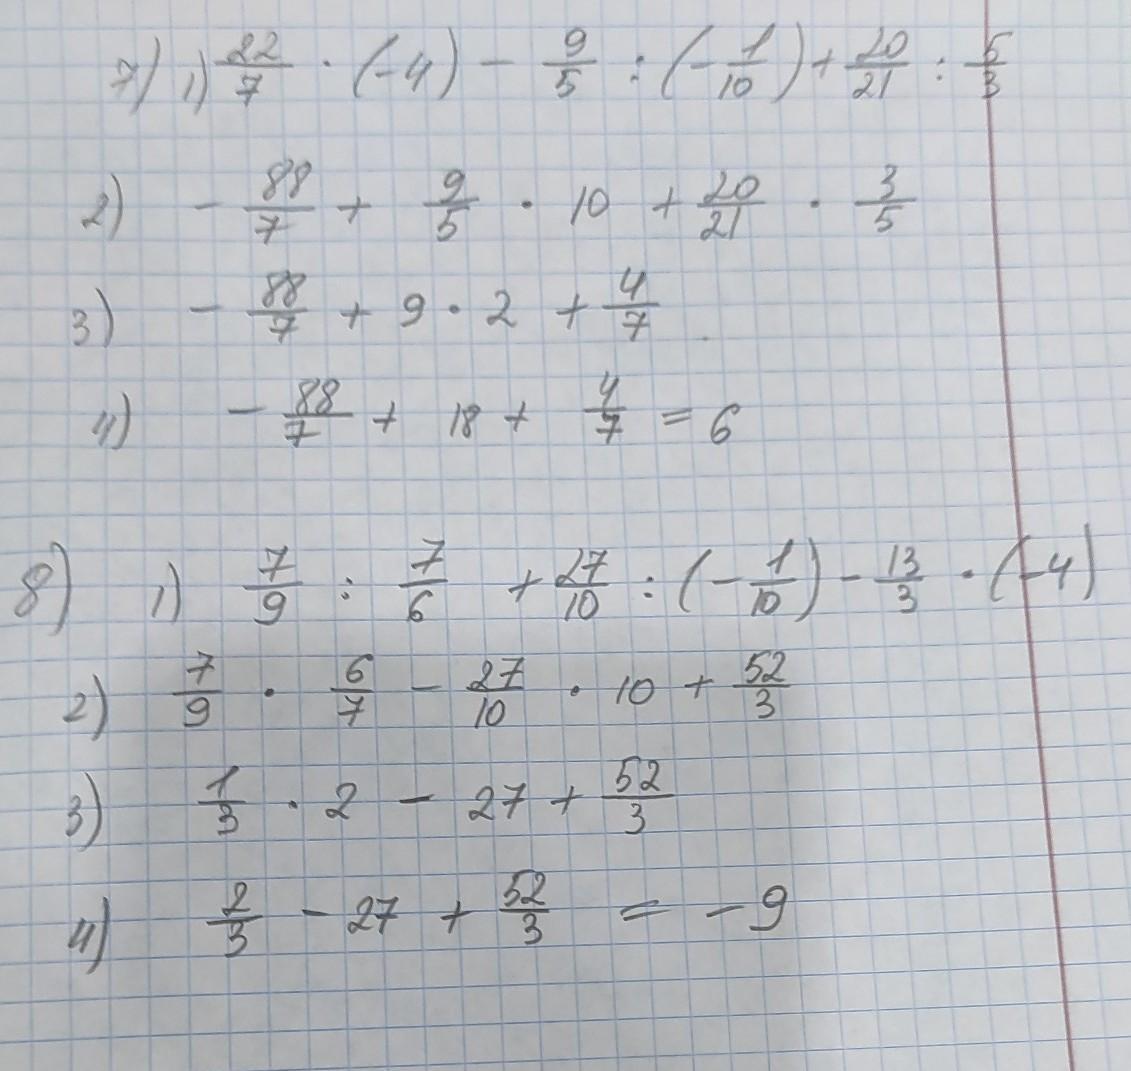 7) 1) 22/7 · (-4) - 9/5 : (-1/10) + 20/21 : 5/3
2) - 88/7 + 9/5 · 10 + 20/21 · 3/5
3) - 88/7 + 9 · 2 + 4/7
4) - 88/7 + 18 + 4/7 = 6
8) 1) 7/9 : 7/6 + 27/10 : (-1/10) - 13/3 · (-4)
2) 7/9 · 6/7 - 27/10 · 10 + 52/3
3) 1/3 · 2 - 27 + 52/3
4) 2/3 - 27 + 52/3 = -9